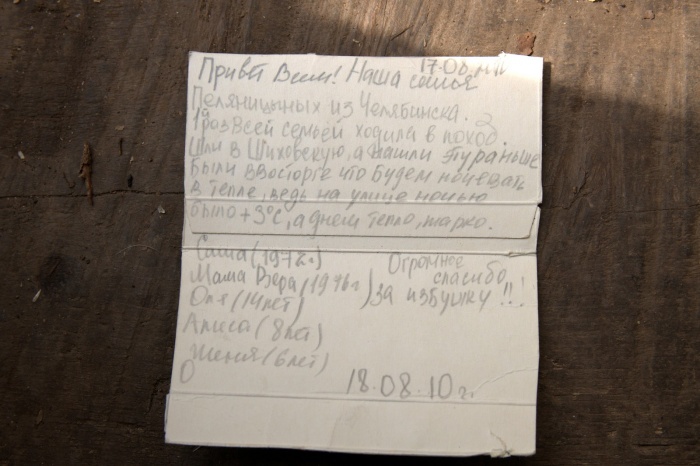 17.08.10г
Привет Всем! Наша семья
Пеляницыных из Челябинска.
1й раз всей семьёй ходила в поход.
Шли в Шиховскую, а нашли эту раньше
Были в восторге что будем ночевать
в тепле, ведь на улице ночью
было +3°С, а днем тепло, жарко.
Саша (1972г.)
Мама Вера (1976г)
Оля (14лет)
Алиса (8лет)
Женя (6лет)
Огромное
спасибо
за избушку!!!
18.08.10г.